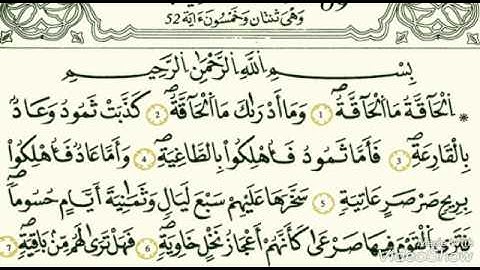 وَهْيَ ثِنْتَانِ وَخَمْسُونَ ءَايَة 52
بِسْمِ اِللَّهِ اِلرَّحْمَٰنِ اِلرَّحِيمِ
* اَلْحَآقَّةُ مَا اَلْحَآقَّةُۖ 1 وَمَآ أَدْرَىٰكَ مَا اَلْحَآقَّةُۖ 2 كَذَّبَتْ ثَمُودُ وَعَادُۢ
بِالْقَارِعَةِۖ 3 فَأَمَّا ثَمُودُ فَأُهْلِكُواْ بِالطَّاغِيَةِۖ 4 وَأَمَّا عَادٌ فَأُهْلِكُواْ
بِرِيحٍ صَرْصَرٍ عَاتِيَةٍ 5 سَخَّرَهَا عَلَيْهِمْ سَبْعَ لَيَالٍ وَثَمَٰنِيَةَ أَيَّامٍ حُسُوماًۖ
فَتَرَى اَلْقَوْمَ فِيهَا صَرْعَىٰ كَأَنَّهُمْ أَعْجَازُ نَخْلٍ خَاوِيَةٍۖ 6 فَهَلْ تَرَىٰ لَهُم مِّنۢ بَاقِيَةٍۖ 7
VIDEOSHOW